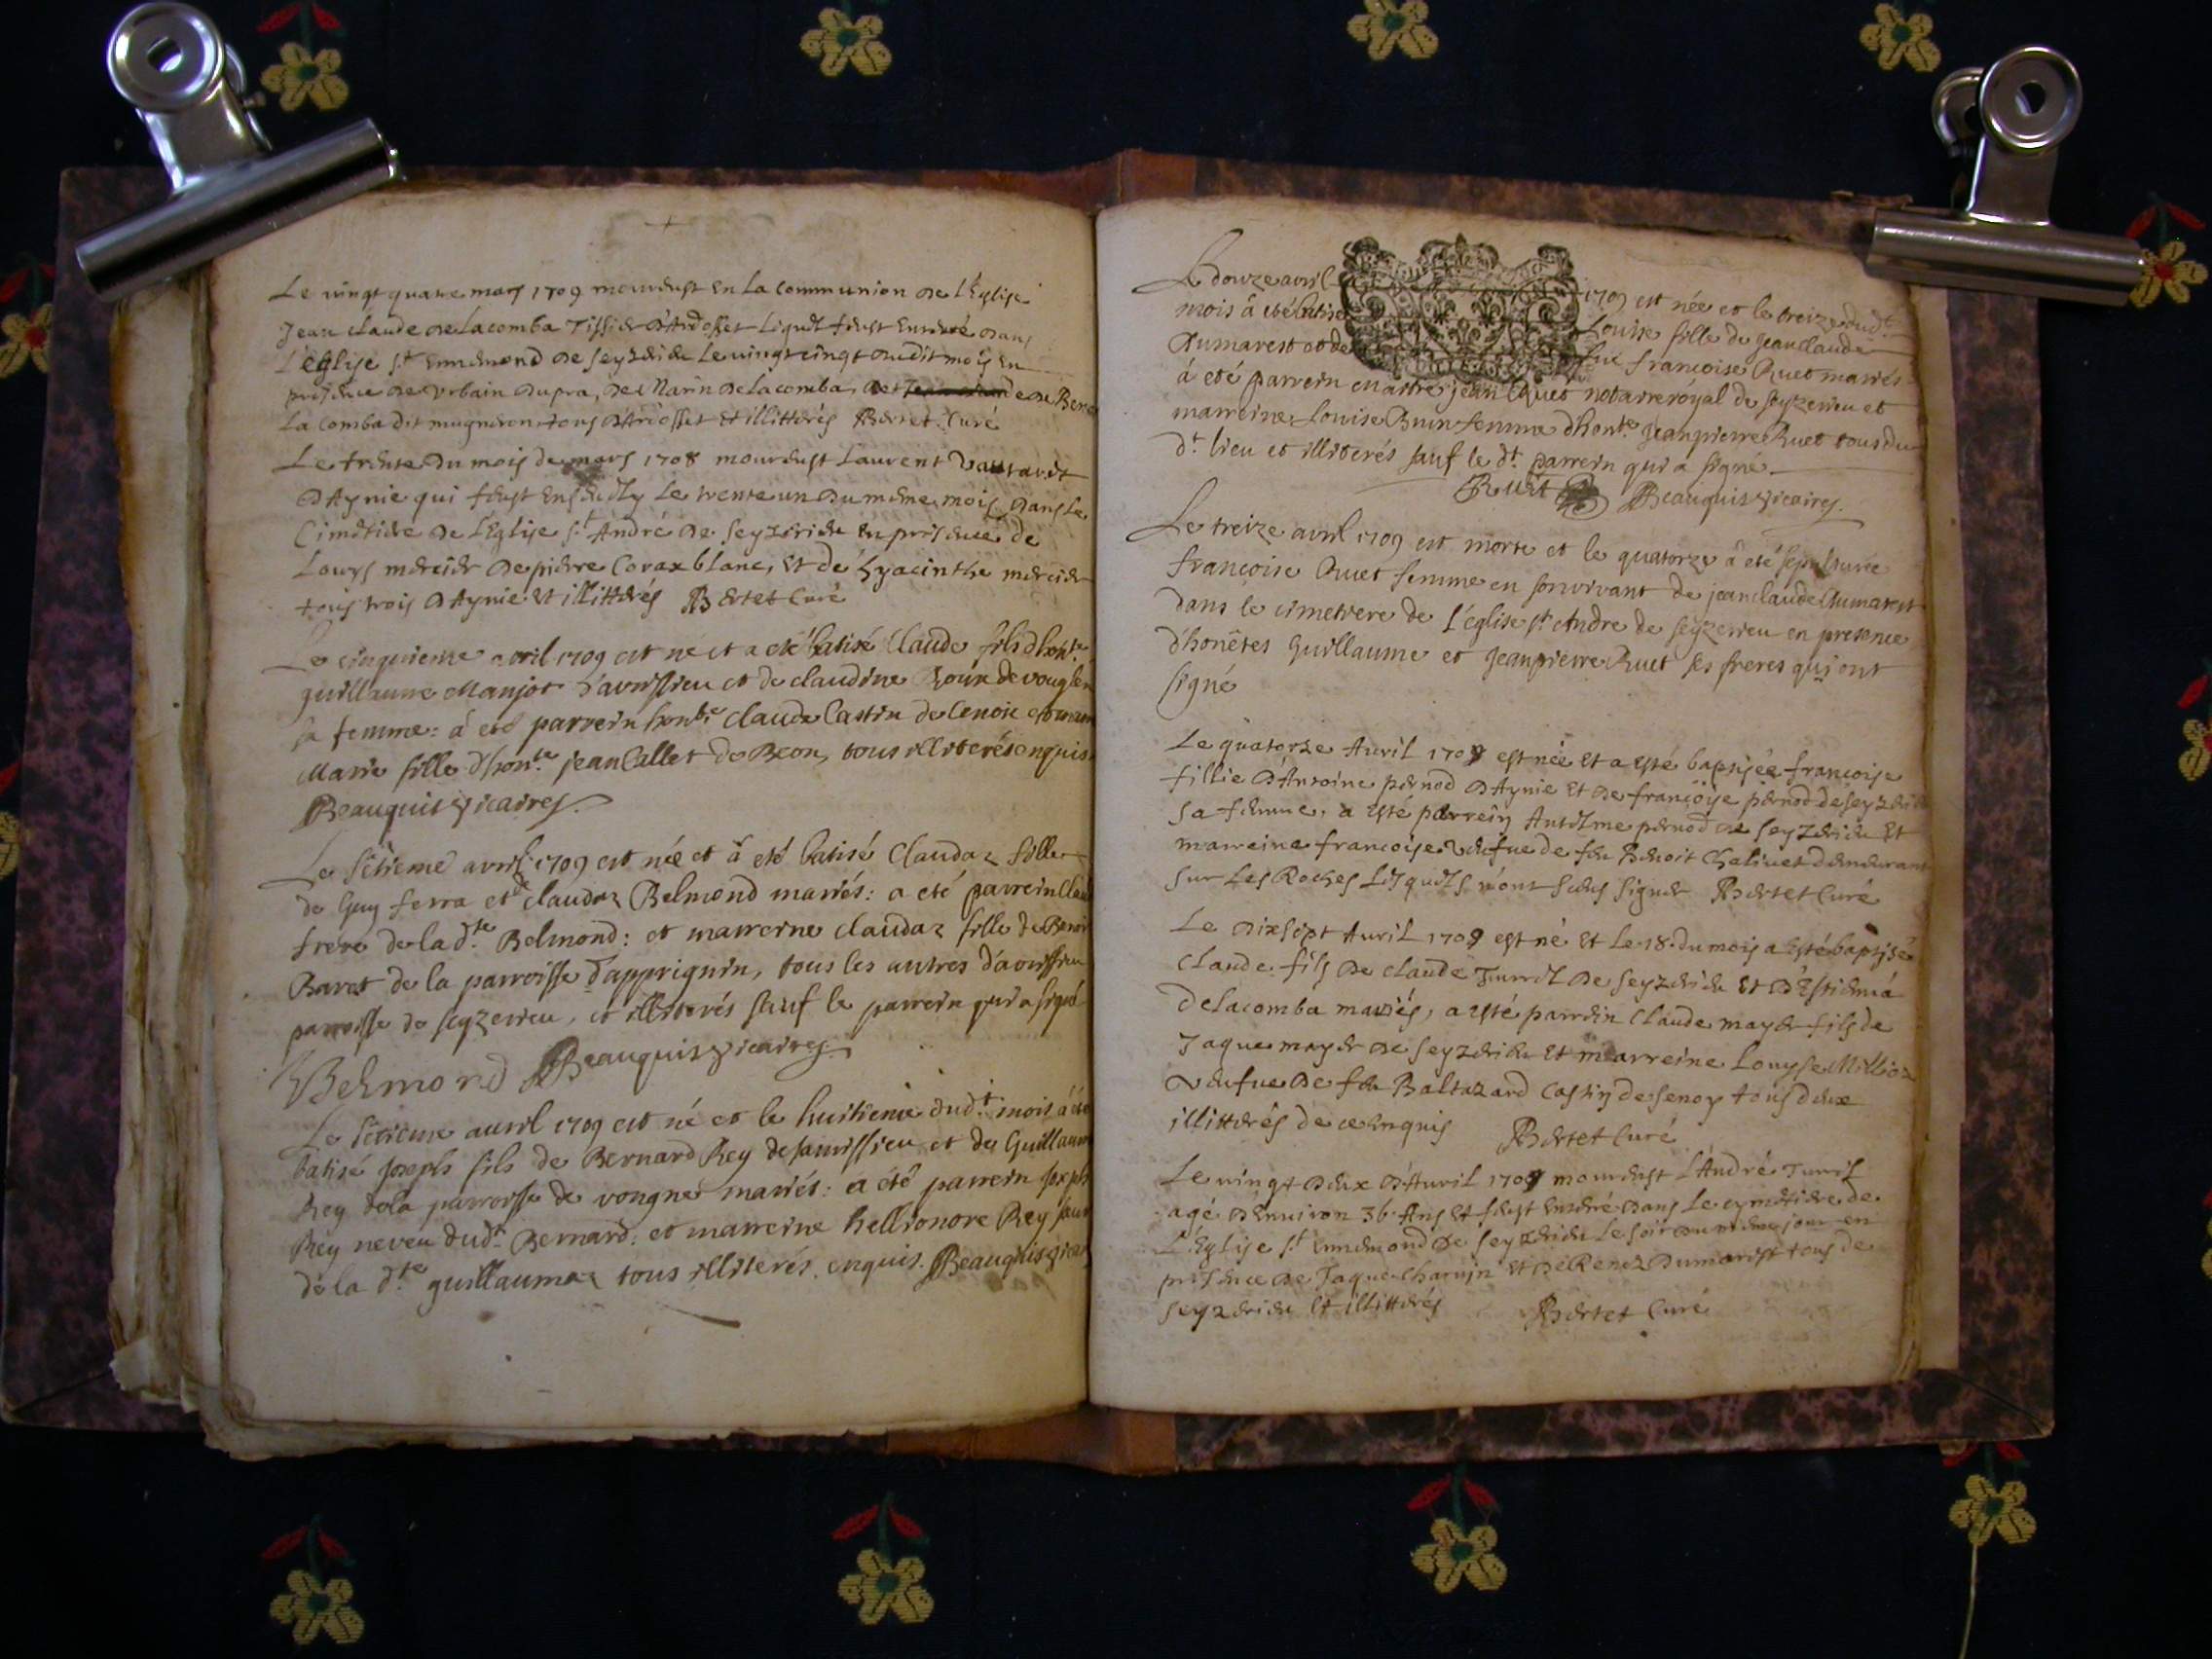 Le vingt quatre mars 1709 mourust en la communion de l'Eglise
Jean claude de lacomba Tissier d'Ardosset liquel feust enterré dans
l'église St Ennemond de seyzerieu le vingt cinqt dudit mois en
presence de Urbain dupra, de Marin delacomba, de
la comba dit mugneron tous d'Ardosset et illitterés Bertet Curé
Le trente du mois de mars 1708 mourust Laurent
d'Aynie qui feust ensevely le trente un du meme mois dans le
Cimetiere de l'Eglise St André de seyzerieu en presence de
Louys mercier de pierre Corax blanc, et de hyacinthe mercier
tous trois d'Aynie et illitterés Bertet Curé
Le cinquieme avril 1709 est né et a eté batisé Claude fils d'honte
guillaume Manjot d'avrissieu et de claudine Roux de
sa femme: a eté parrein honble Claude Castin de Cenoie et
Marie fille d'honte jean Callet de Beon, tous illiterés enquis
Beauquis vicaires.
Le setieme avril 1709 est née et à eté batisé Claudaz fille
de Guy ferra et de claudaz Belmond mariés: a eté parrein
frere de la dte Belmond: et marreine claudaz fille de
Bavet de la parroisse d'apprignin, tous les autres d'avrissieu
parroisse de seyzerieu, et illiterés sauf le parrein qui a signé
Belmond Beauquis vicaires
Le setieme avril 1709 est né et le huitieme dudt mois à eté
batisé joseph fils de Bernard Rey de savrissieu et de
Rey de la parroisse de vongne mariés: a eté parrein joseph
Rey neveu dudt Bernard: et marreine hellionore Rey
de la dte guillaumaz tous illiterés enquis. Beauquis
Le douze avril 1709 est née et le treize dudt
mois à eté batisé Louise fille de jean claude
Dumarest et de françoise Ruet mariés
à eté parrein maitre jean Ruet notaire royal de seyzerieu et
marreine Louise Brun femme d'honte jeanpierre Ruet tous du
dt lieu et illiterés sauf le dt parrein qui a signé.
Ruet Beauquis vicaires.
Le treize avril 1709 est morte et le quatorze à eté sepulturée
françoise Ruet femme en son vivant de jeanclaude Dumarest
dans le cimetiere de l'église st Andre de seyzerieu en presence
d'honêtes guillaume et jeanpierre Ruet ses freres qui ont
signé
Le quatorze Avril 1709 est née et a esté baptisée françoise
fillie d'Antoine pernod d'Aynie et de françoise pernod de seyzerieu
sa femme, a esté parrein Antelme pernod de seyzerieu et
marreine françoise veufue de feu Benoit Chaliuet demeurant
sur les Roches lesquels n'ont sceus signer Bertet Curé
Le dixsept Avril 1709 est né et le 18. du mois a esté baptisé
claude fils de claude Turrel de seyzerieu et d'Estiena
delacomba mariés, a esté parrein Claude mayer fils de
Jaque mayer de seyzerieu et marreine Louyse Millioz
veufue de feu Baltazard Castin de senoy tous deux
illitterés de ce enquis Bertet Curé
Le vingt deux d'Auril 1709 mourust l'André Turril
agé d'enuiron 36 Ans et feust enterré dans le cymetiere de
l'Eglise St Ennemond de seyzerieu le soir du meme jour en
presence de Jaque Charvin et de Renez Dumarest tous de
seyzerieu et illitterés Bertet Curé